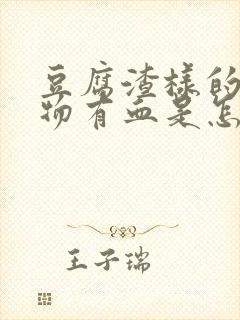 豆腐渣样的
物有血是怎
王子瑞